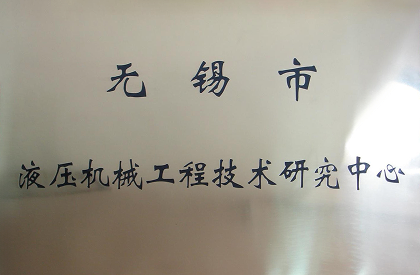 无锡市
液压机械工程技术研究中心